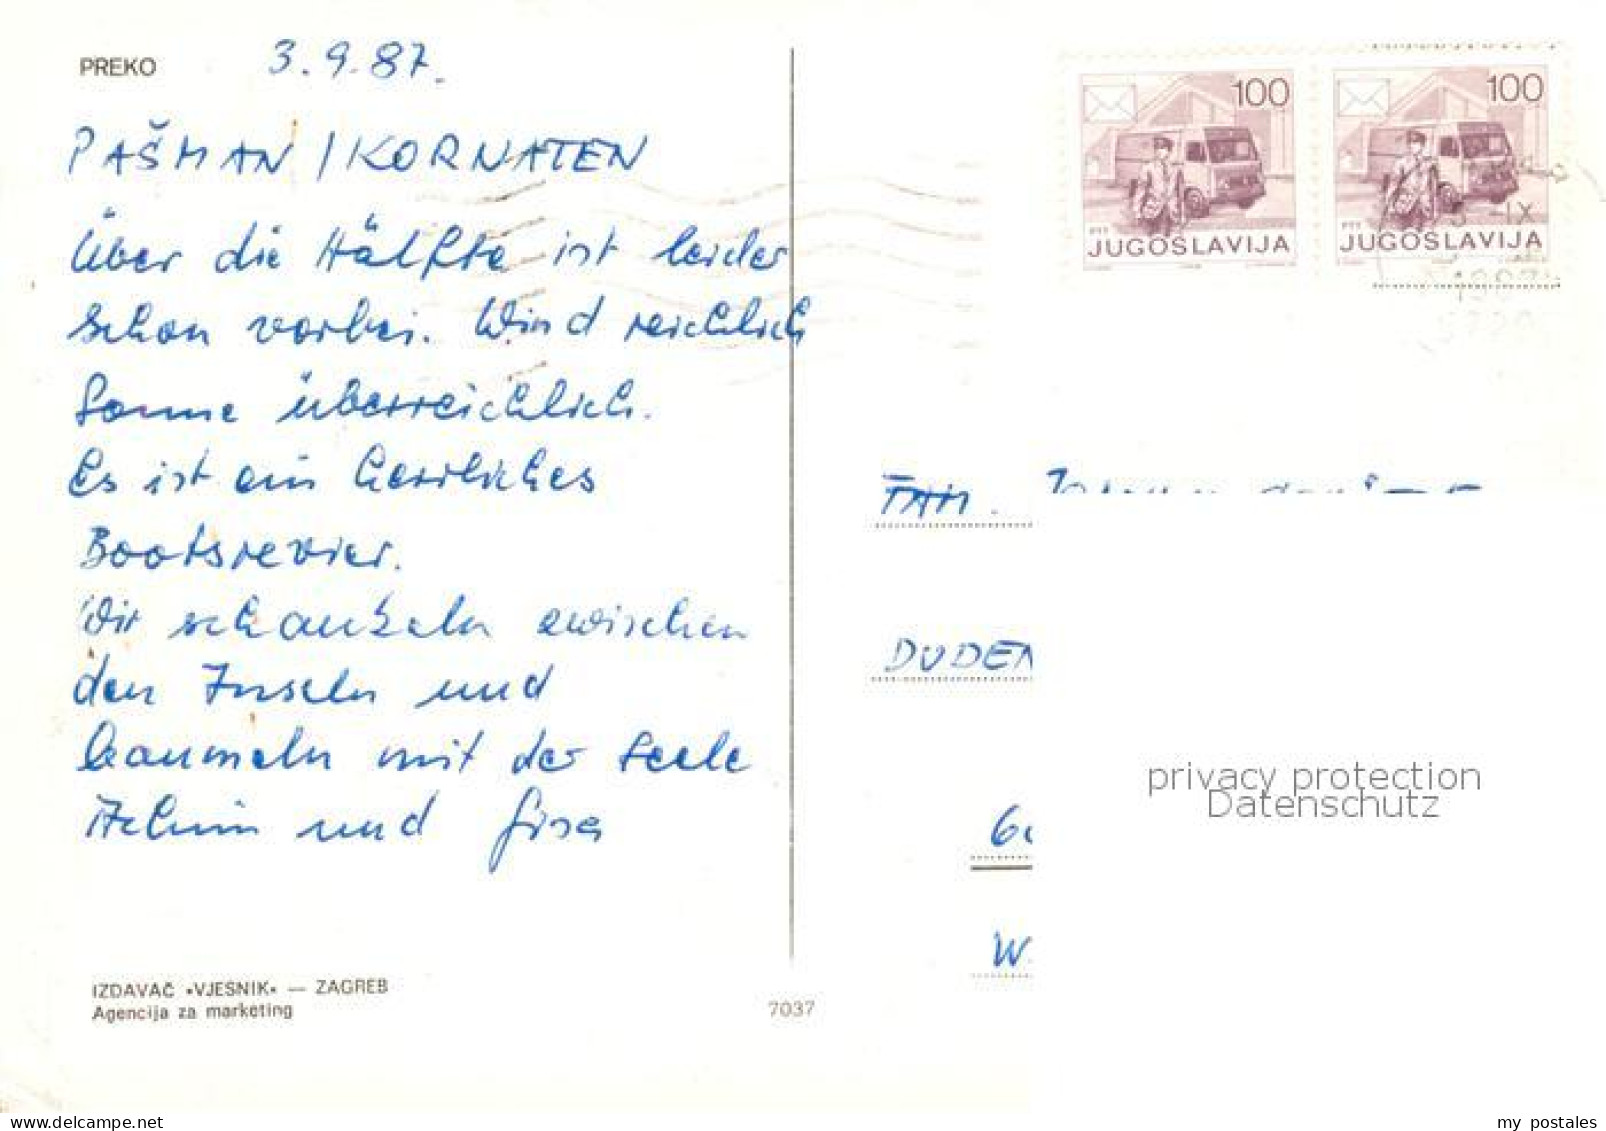 PREKO 3.9.87.
PAŠMAN / KORNATEN
Über die Hälfte ist leider
schon vorbei. Wind reichlich
Sonne überreichlich.
Es ist ein herrliches
Bootsrevier.
Wir schaukeln zwischen
den Inseln und
baumeln mit der Seele
und
IZDAVAČ «VJESNIK» — ZAGREB
Agencija za marketing
7037
100 100
PTT PTT
JUGOSLAVIJA JUGOSLAVIJA
IX
FAM.
DUDEN
privacy protection
Datenschutz
W.
my postales